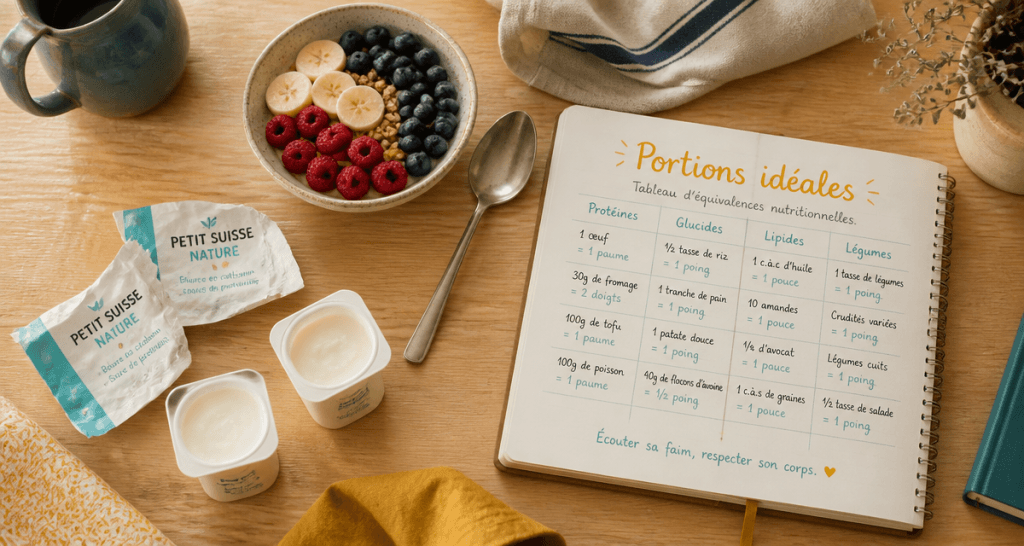 PETIT SUISSE
NATURE
PETIT SUISSE
NATURE
Portions idéales
Tableau d'équivalences nutritionnelles.
Protéines
1 œuf
= 1 paume
30g de fromage
= 2 doigts
100g de tofu
= 1 paume
100g de poisson
= 1 paume
Glucides
½ tasse de riz
= 1 poing
1 tranche de pain
= 1 poing
1 patate douce
= 1 poing
40g de flocons d'avoine
= ½ poing
Lipides
1 c.à.c d'huile
= 1 pouce
10 amandes
= 1 pouce
d'avocat
= 1 pouce
1 c.à.s de graines
= 1 pouce
Légumes
1 tasse de légumes
= 1 poing
Crudités variées
= 1 poing
Légumes cuits
= 1 poing
½ tasse de salade
= 1 poing
Écouter sa faim, respecter son corps.